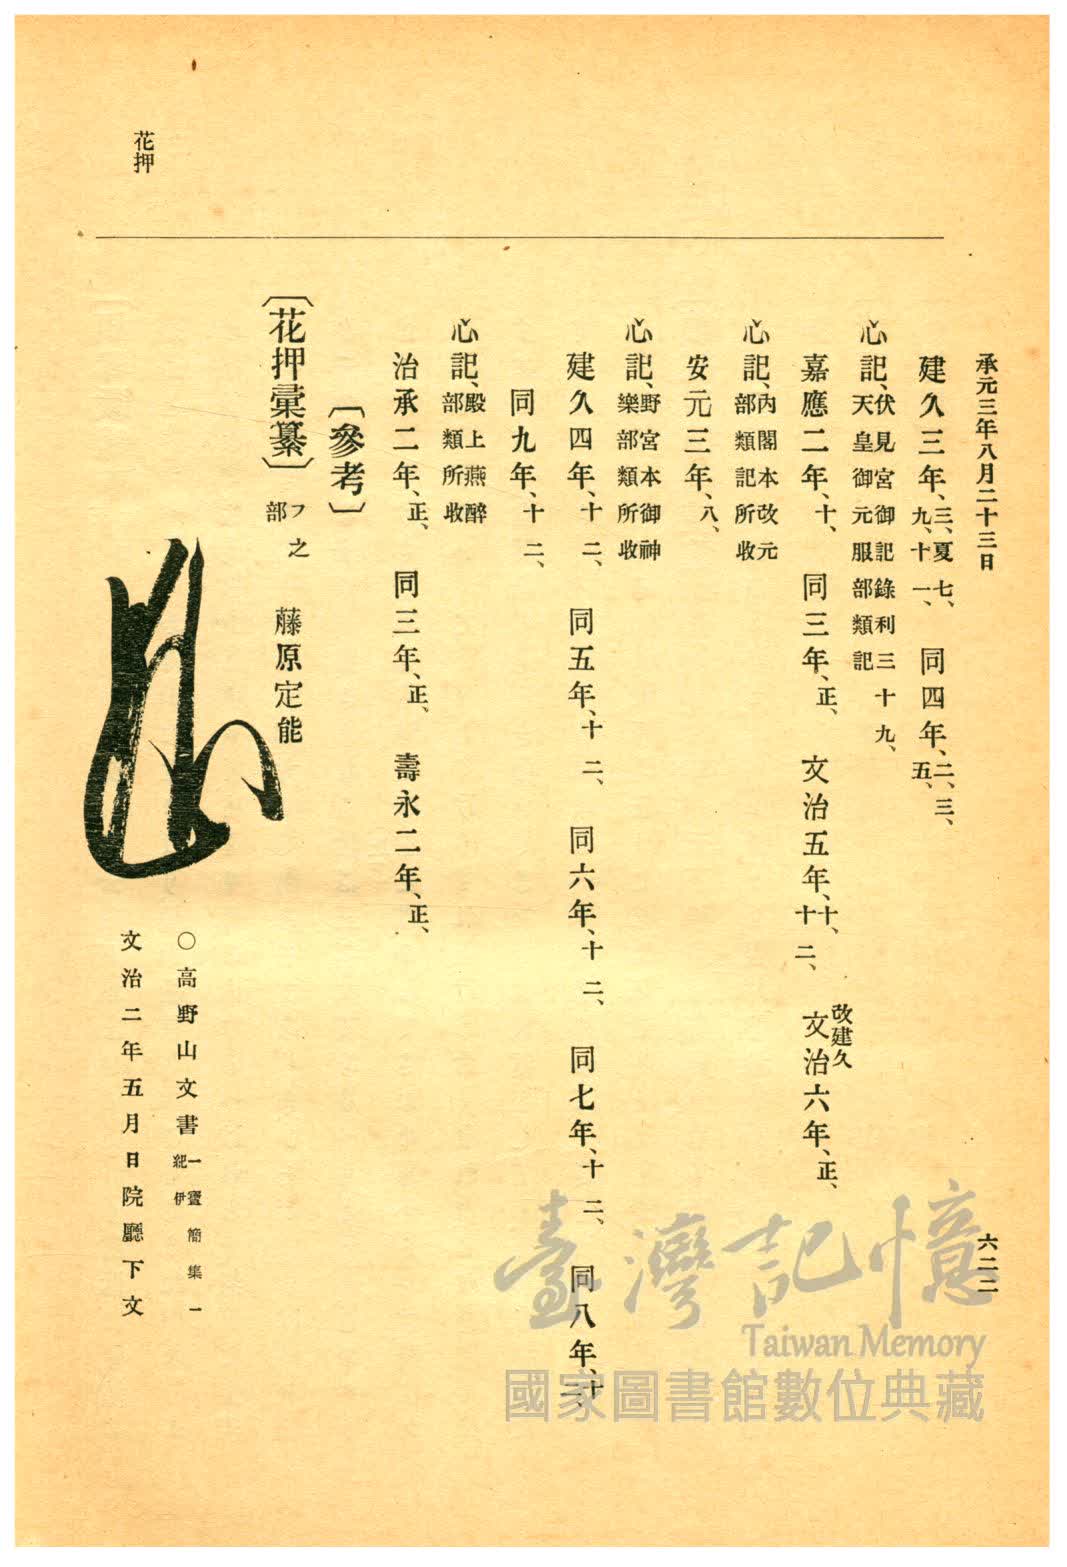 承元三年八月二十三日
六二二
建久三年、三、夏七、九、十一、 同四年、二、三、五、
心記、伏見宮御記錄利三十九、天皇御元服部類記
嘉應二年、十、 同三年、正、 文治五年、十、十二、 文治六年、正、
改建久
心記、內閣本改元部類記所收
安元三年、八、
心記、野宮本御神樂部類所收
建久四年、十二、 同五年、十二、 同六年、十二、 同七年、十二、 同八年、十二、
同九年、十二、
心記、殿上燕醉部類所收
治承二年、正、 同三年、正、 壽永二年、正、
〔參考〕
〔花押彙纂〕 フ之部 藤原定能
○高野山文書 一寶簡集一 紀伊
文治二年五月日院廳下文
花押
臺灣記憶
Taiwan Memory
國家圖書館數位典藏